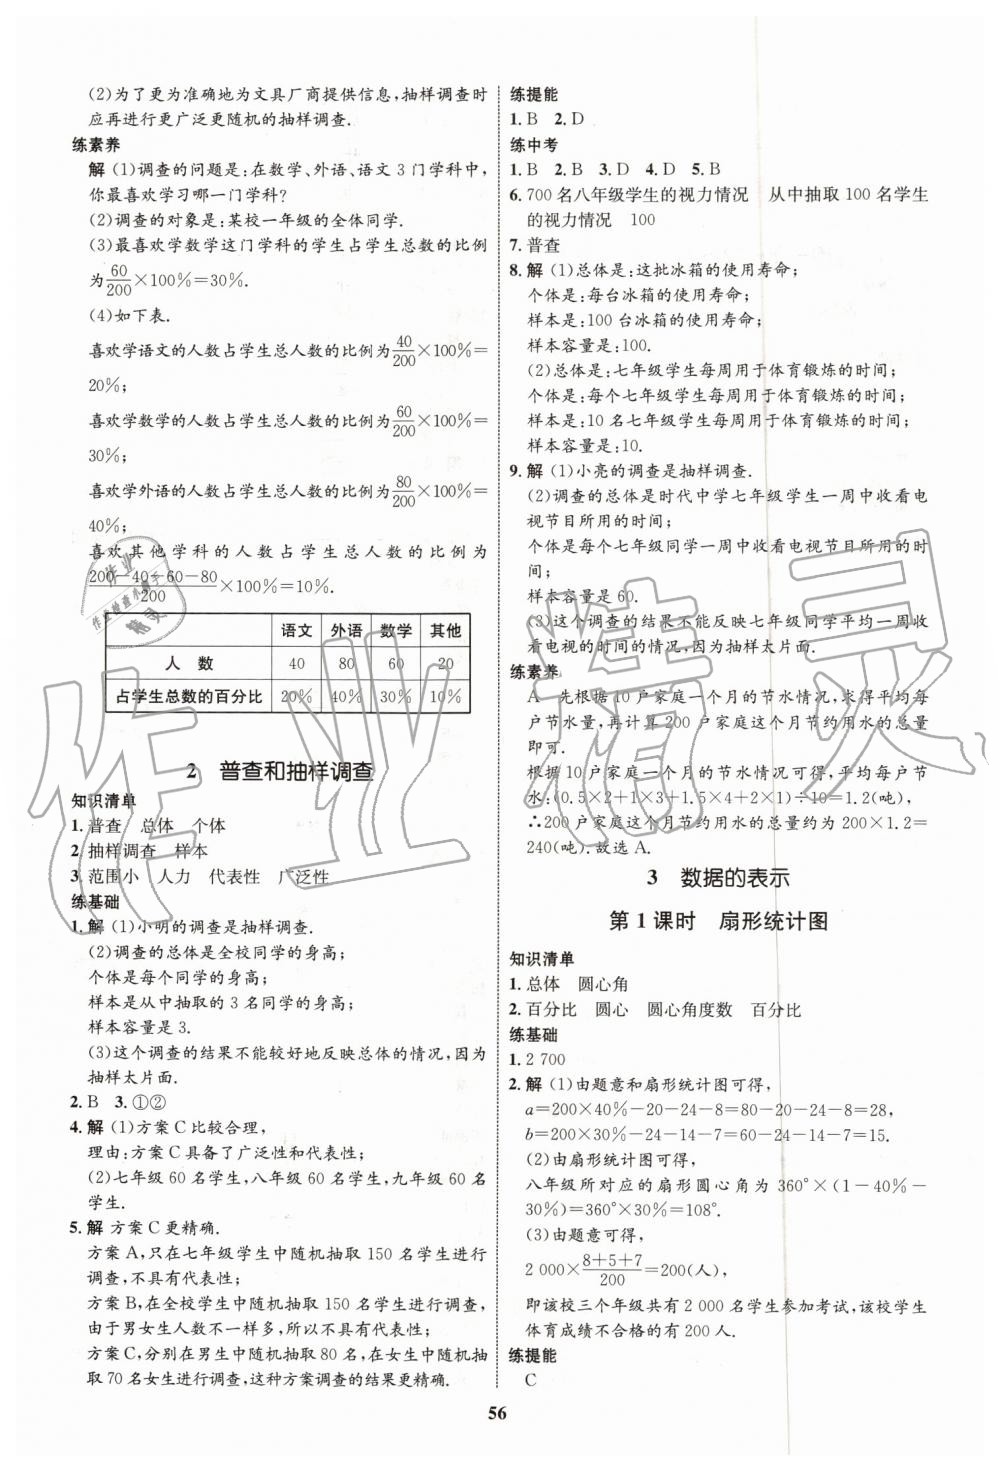 (2)为了更为准确地为文具厂商提供信息,抽样调查时
应再进行更广泛更随机的抽样调查.
练素养
解 (1)调查的问题是:在数学、外语、语文 3 门学科中,
你最喜欢学习哪一门学科?
(2)调查的对象是:某校一年级的全体同学.
(3)最喜欢学数学这门学科的学生占学生总数的比例
为60/200×100%=30%.
(4)如下表.
喜欢学语文的人数占学生总人数的比例为40/200×100%=
20%;
喜欢学数学的人数占学生总人数的比例为60/200×100%=
30%;
喜欢学外语的人数占学生总人数的比例为80/200×100%=
40%;
喜欢其他学科的人数占学生总人数的比例为
(200-40-60-80)/200×100%=10%.
语文 外语 数学 其他
人 数 40 80 60 20
占学生总数的百分比 20% 40% 30% 10%
2 普查和抽样调查
知识清单
1.普查 总体 个体
2 抽样调查 样本
3 范围小 人力 代表性 广泛性
练基础
1.解 (1)小明的调查是抽样调查.
(2)调查的总体是全校同学的身高;
个体是每个同学的身高;
样本是从中抽取的 3 名同学的身高;
样本容量是 3.
(3)这个调查的结果不能较好地反映总体的情况,因为
抽样太片面.
2.B 3.①②
4.解 (1)方案 C 比较合理,
理由:方案 C 具备了广泛性和代表性;
(2)七年级 60 名学生,八年级 60 名学生,九年级 60 名
学生.
5.解 方案 C 更精确.
方案 A,只在七年级学生中随机抽取 150 名学生进行
调查,不具有代表性;
方案 B,在全校学生中随机抽取 150 名学生进行调查,
由于男女生人数不一样多,所以不具有代表性;
方案 C,分别在男生中随机抽取 80 名,在女生中随机抽
取 70 名女生进行调查,这种方案调查的结果更精确.
练提能
1.B 2.D
练中考
1.B 2.B 3.D 4.D 5.B
6.700 名八年级学生的视力情况 从中抽取 100 名学生
的视力情况 100
7.普查
8.解 (1)总体是:这批冰箱的使用寿命;
个体是:每台冰箱的使用寿命;
样本是:100 台冰箱的使用寿命;
样本容量是:100.
(2)总体是:七年级学生每周用于体育锻炼的时间;
个体是:每个七年级学生每周用于体育锻炼的时间;
样本是:10 名七年级学生每周用于体育锻炼的时间;
样本容量是:10.
9.解 (1)小亮的调查是抽样调查.
(2)调查的总体是时代中学七年级学生一周中收看电
视节目所用的时间;
个体是每个七年级同学一周中收看电视节目所用的时
间;
样本容量是 60.
(3)这个调查的结果不能反映七年级同学平均一周
收看电视的时间的情况,因为抽样太片面.
练素养
A 先根据 10 户家庭一个月的节水情况,求得平均每
户节水量,再计算 200 户家庭这个月节约用水的总量
即可.
根据 10 户家庭一个月的节水情况可得,平均每户节
水:(0.5×2+1×3+1.5×4+2×1)÷10=1.2(吨),
∴200 户家庭这个月节约用水的总量约为 200×1.2=
240(吨).故选 A.
3 数据的表示
第 1 课时 扇形统计图
知识清单
1.总体 圆心角
2.百分比 圆心 圆心角度数 百分比
练基础
1.2 700
2.解 (1)由题意和扇形统计图可得,
a=200×40%-20-24-8=80-20-24-8=28,
b=200×30%-24-14-7=60-24-14-7=15.
(2)由扇形统计图可得,
八年级所对应的扇形圆心角为 360°×(1-40%-
30%)=360°×30%=108°.
(3)由题意可得,
2 000×(8+5+7)/200=200(人),
即该校三个年级共有 2 000 名学生参加考试,该校学生
体育成绩不合格的有 200 人.
练提能
C
56
作业精灵